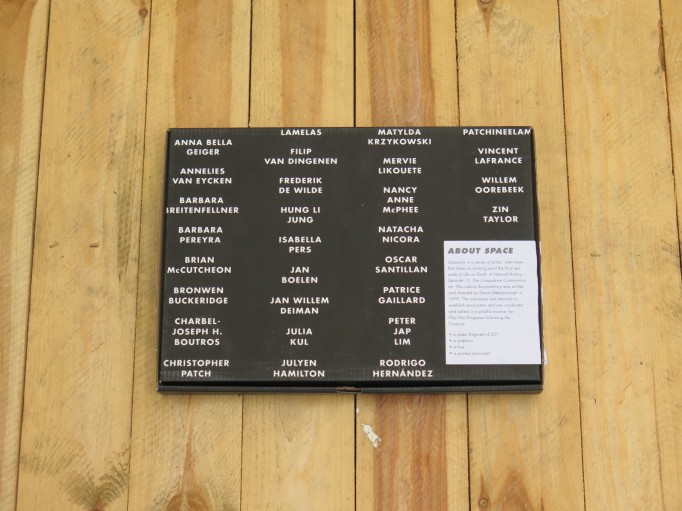 ANNA BELLA
GEIGER
ANNELIES
VAN EYCKEN
BARBARA
BREITENFELLNER
BARBARA
PEREYRA
BRIAN
McCUTCHEON
BRONWEN
BUCKERIDGE
CHARBEL-
JOSEPH H.
BOUTROS
CHRISTOPHER
PATCH
LAMELAS
FILIP
VAN DINGENEN
FREDERIK
DE WILDE
HUNG LI
JUNG
ISABELLA
PERS
JAN
BOELEN
JAN WILLEM
DEIMAN
JULIA
KUL
JULYEN
HAMILTON
MATYLDA
KRZYKOWSKI
MERVIE
LIKOUETE
NANCY
ANNE
McPHEE
NATACHA
NICORA
OSCAR
SANTILLAN
PATRICE
GAILLARD
PETER
JAP
LIM
RODRIGO
HERNÁNDEZ
PATCHINEELAM
VINCENT
LAFRANCE
WILLEM
OOREBEEK
ZIN
TAYLOR
ABOUT SPACE